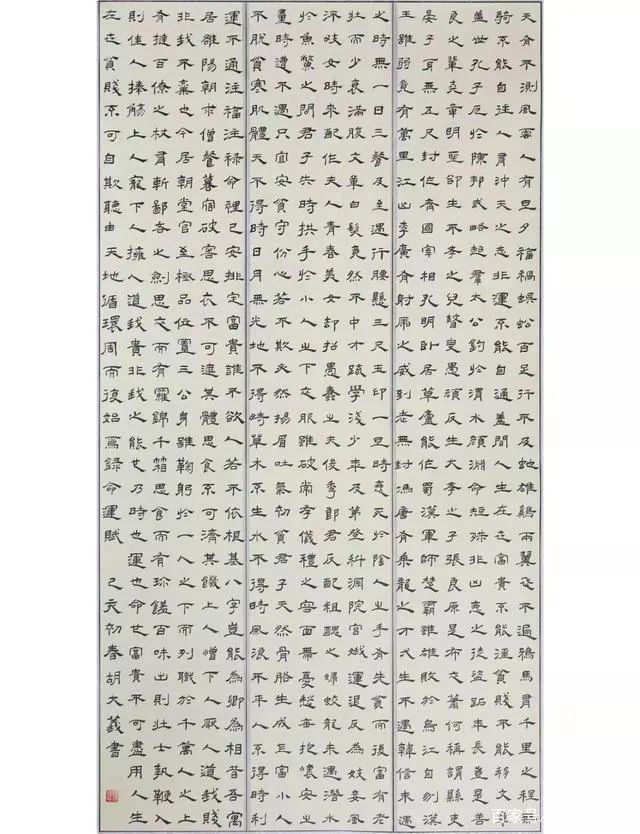 天有不測風雲人有旦夕福禍蜈蚣百足行不及蛇雄鷄兩翼飛不過鴉馬有千里之程無
騎不能自往人有沖天之志非運不能自通蓋聞人生在世富貴不能淫貧賤不能移文章
蓋世孔子厄於陳邦武略超群太公釣於渭水顏淵命短殊非凶惡之徒盜跖年長豈是善
良之輩堯帝明聖卻生不孝之兒瞽叟愚頑反生大孝之子張良原是布衣蕭何稱謂縣吏
晏子身無五尺封作齊國宰相孔明卧居草廬能作蜀漢軍師楚霸雖雄敗於烏江自刎漢
王雖弱竟有萬里江山李廣有射虎之威到老無封馮唐有乘龍之才一生不遇韓信未遇
之時無一日三餐及至遇行腰懸三尺玉印一旦時衰死於陰人之手有先貧而後富有老
壯而少衰滿腹文章白髮竟然不中才疏學淺少年及第登科深院宮娥運退反為妓妾風
流妓女時來配作夫人青春美女却招愚蠢之夫俊秀郎君反配粗醜之婦蛟龍未遇潛水
於魚鱉之間君子失時拱手於小人之下衣服雖破常存儀禮之容面帶憂愁每抱懷安之
量時遭不遇只宜安貧守份心若不欺必然揚眉吐氣初貧君子天然骨格生成乍富小人
不脫貧寒肌體天不得時日月無光地不得時草木不生水不得時風浪不平人不得時利
運不通注福注禄命裡已安排定富貴誰不欲人若不依根基八字豈能為卿為相昔吾寓
居雒陽朝求僧餐暮宿破窰思衣不可遮其體思食不可濟其饑上人憎下人厭人道我賤
非我不棄也今居朝堂官至極品位置三公身雖鞠躬於一人之下而列職於千萬人之上
有撻百僚之杖有斬鄙吝之劍思衣而有羅錦千箱思食而有珍饈百味出則壯士執鞭入
則佳人捧觴上人寵下人擁人道我貴非我之能也乃時也運也命也富貴不可盡用人生
在世貧賤不可自欺聽由天地循環周而復始焉録命運賦 己亥初春胡大義書